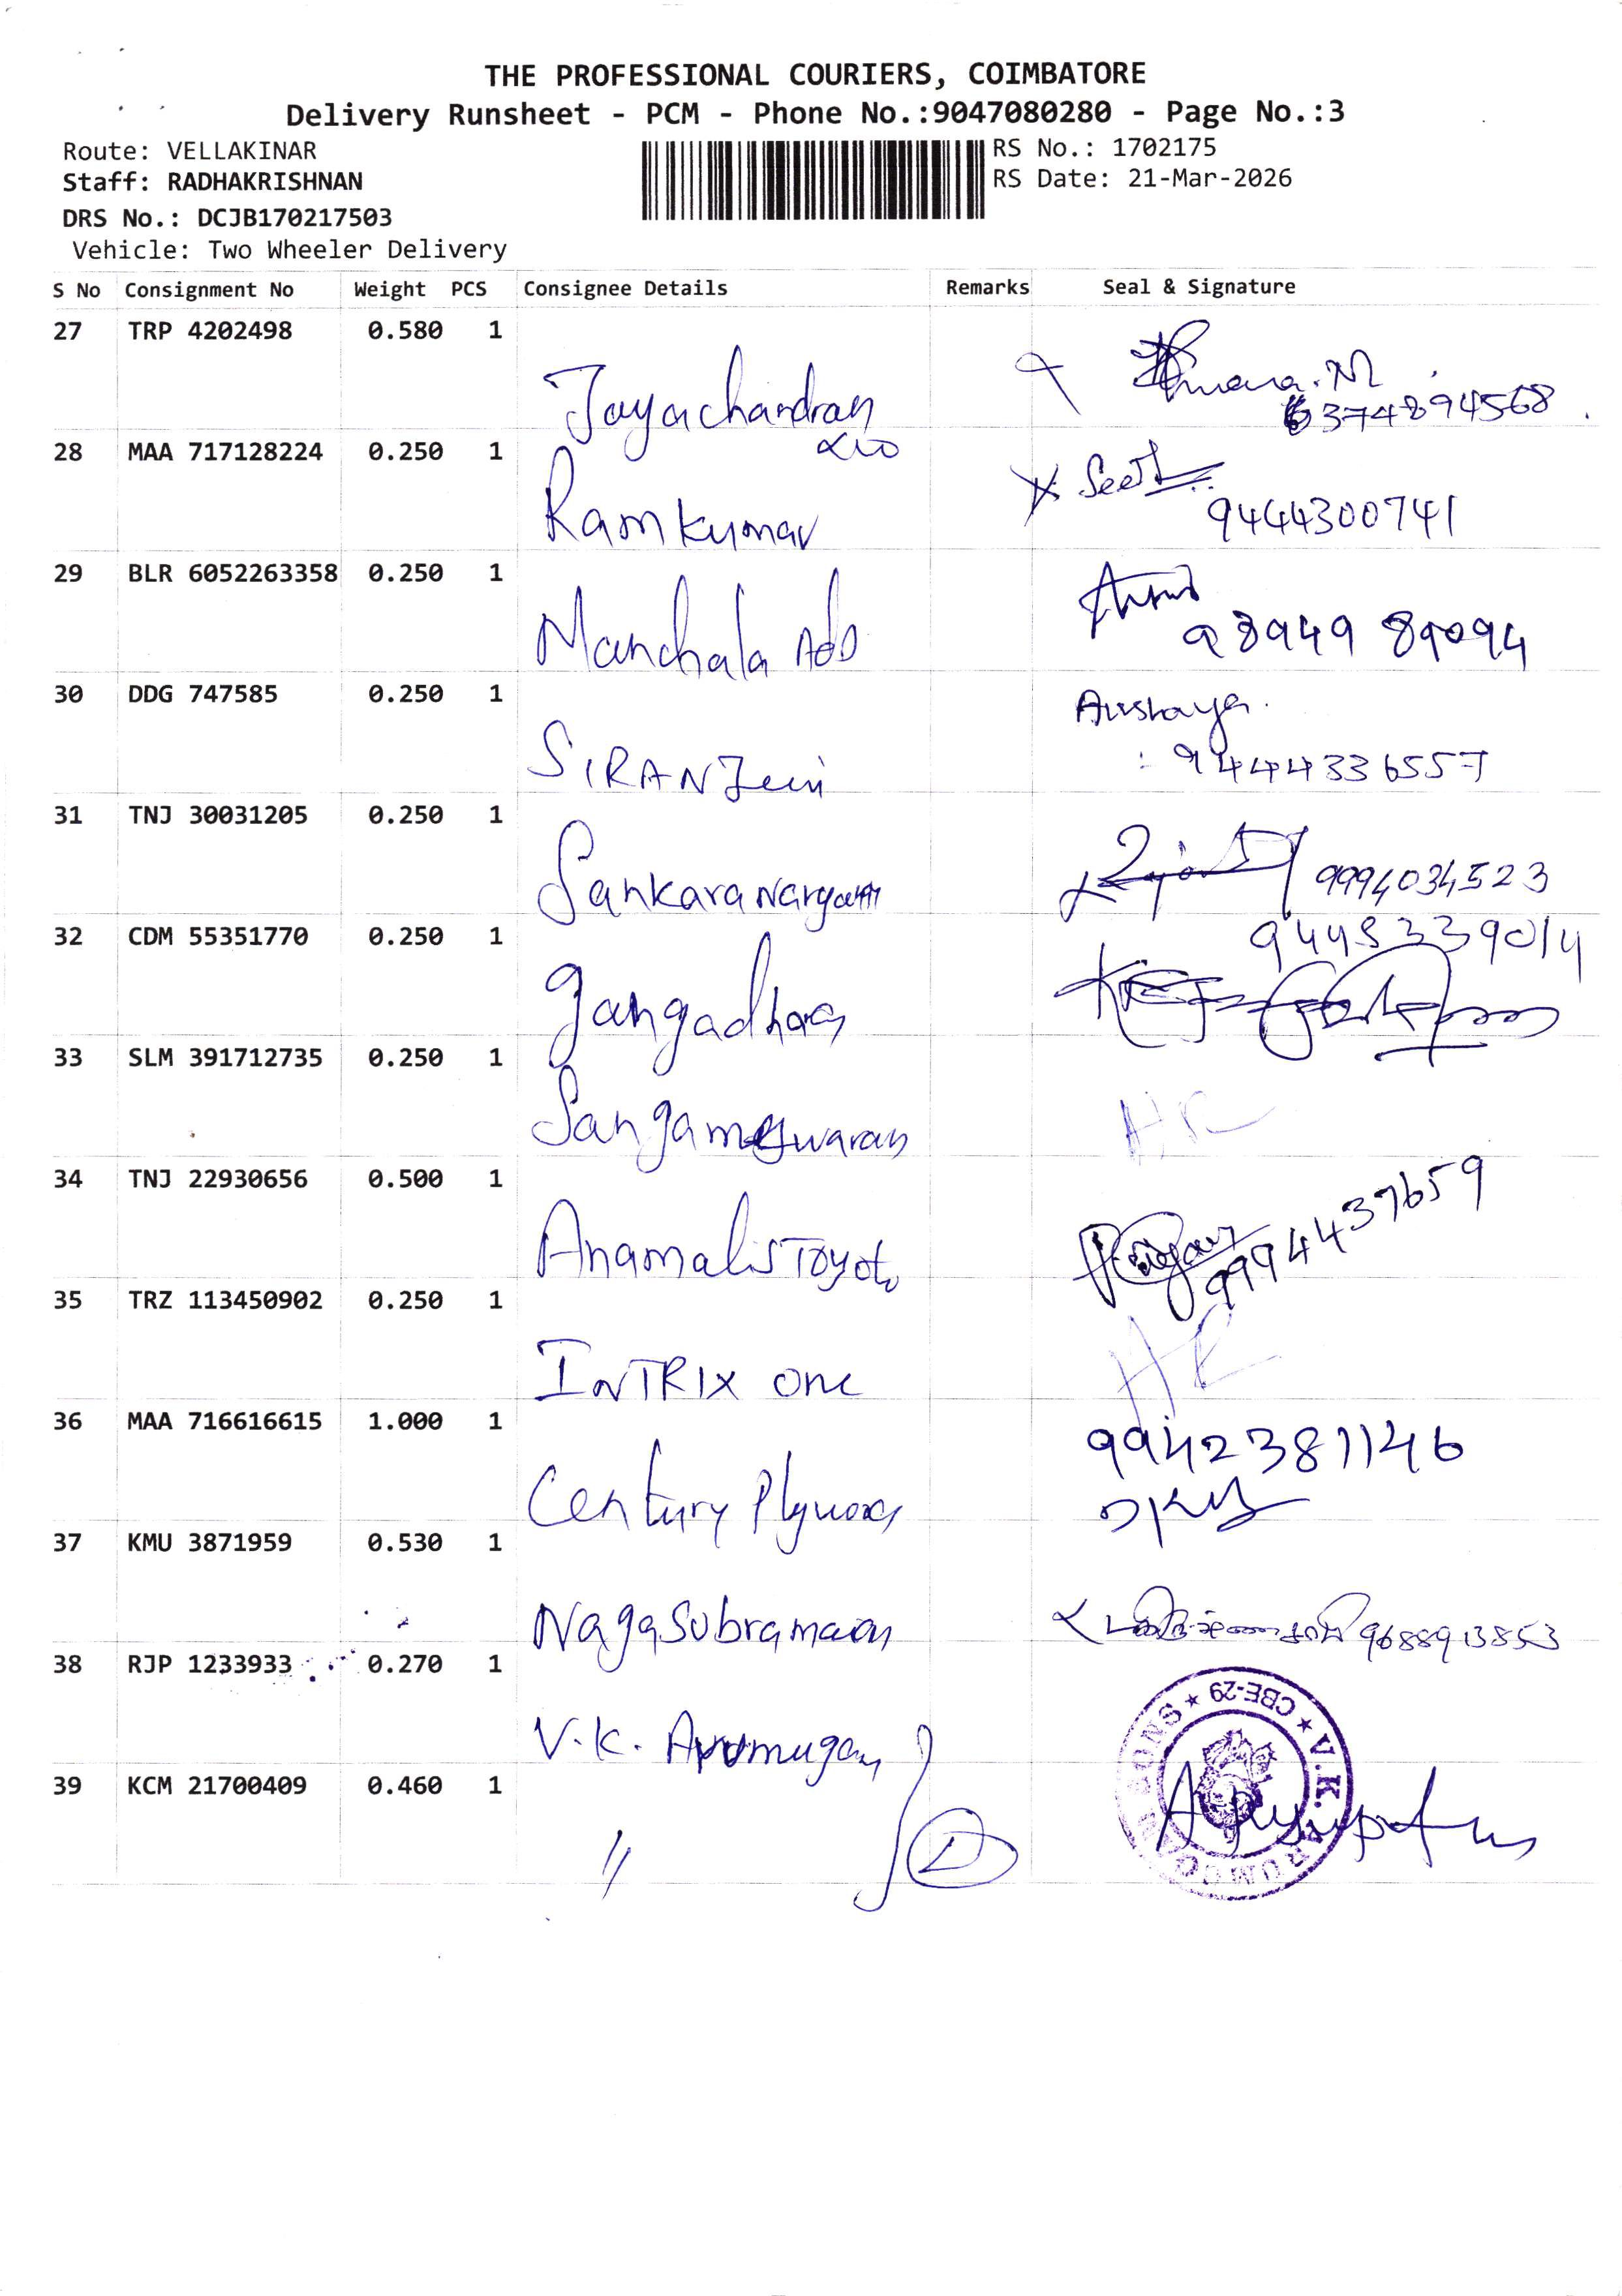 THE PROFESSIONAL COURIERS, COIMBATORE
Delivery Runsheet - PCM - Phone No.:9047080280 - Page No.:3
Route: VELLAKINAR
RS No.: 1702175
Staff: RADHAKRISHNAN
RS Date: 21-Mar-2026
DRS No.: DCJB170217503
Vehicle: Two Wheeler Delivery
S No Consignment No Weight PCS Consignee Details Remarks Seal & Signature
27 TRP 4202498 0.580 1
Jayachandran
6374894568
28 MAA 717128224 0.250 1
Ramkumar
9444300741
29 BLR 6052263358 0.250 1
Manchala Ads
98949 89094
30 DDG 747585 0.250 1
SIRANJeevi
94444336557
31 TNJ 30031205 0.250 1
Sankara Narayanan 9994034523
32 CDM 55351770 0.250 1
Gangadharan
33 SLM 391712735 0.250 1
Sangameswaran
34 TNJ 22930656 0.500 1
Anamalis Toyota 9994437659
35 TRZ 113450902 0.250 1
INTRIX One
36 MAA 716616615 1.000 1
9942381146
Century Plywood
37 KMU 3871959 0.530 1
Nagasubramanian 9688913853
38 RJP 1233933 0.270 1
V.K. Arumugam
V.K. ARUMUGAM SONS ★ CBE-29 ★
39 KCM 21700409 0.460 1
〃